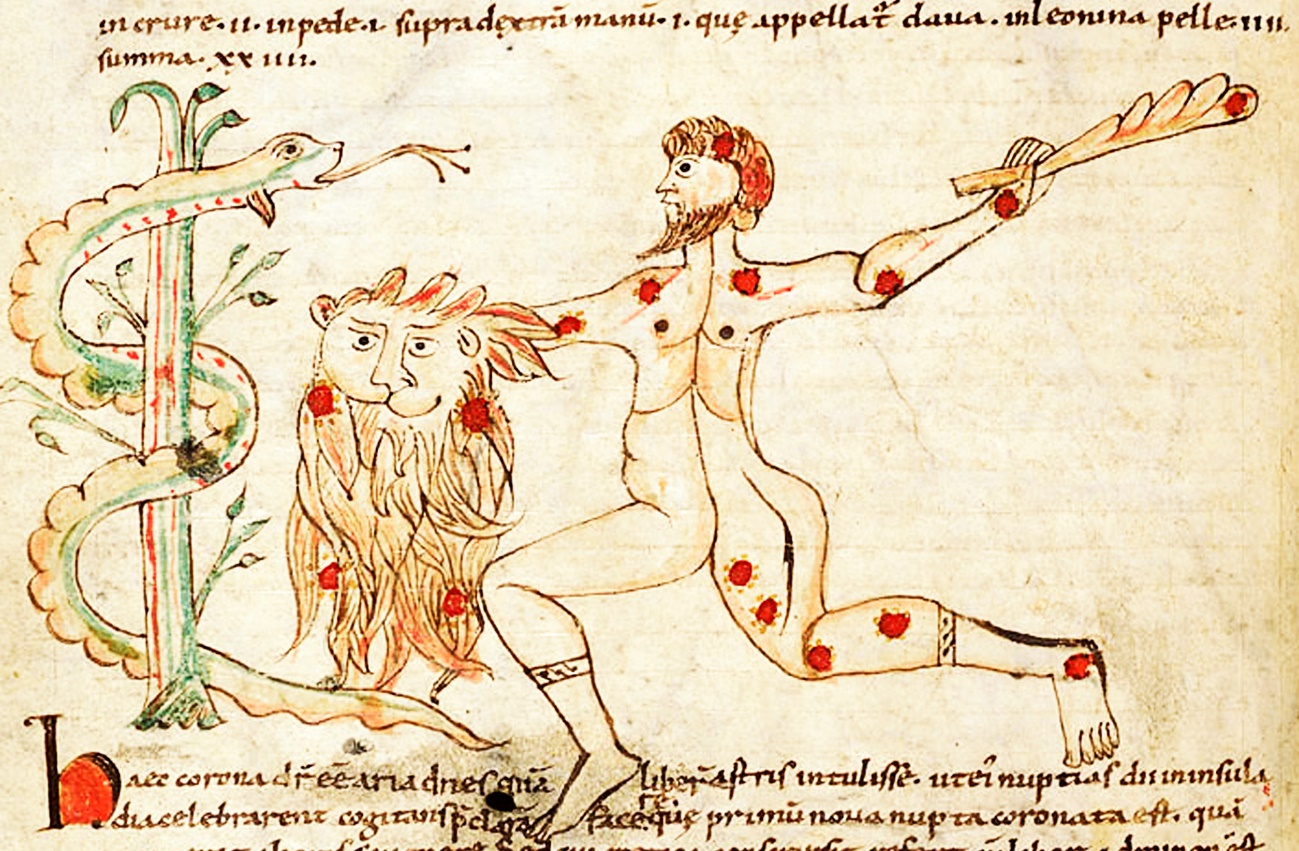 in crure · ii · in pede · i · supra dextrā manū · i · quę appellat̄ claua · in leonina pelle · iiii ·
summa · xx iiii ·
haec corona dr̄ eē ariadnes quā liber astris intulisse · ut ei nuptias dii in insula
dia celebrarent cogitans p̄clarā facę quę primū noua nupta coronata est · quā